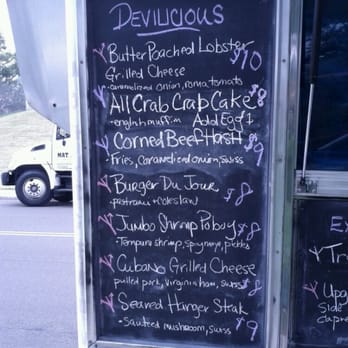 DEVILICIOUS
Butter Poached Lobster $10
Grilled Cheese
- caramelized onion, roma tomato
All Crab Crab Cake $8
- english muffin Add Egg 1
Corned Beef Hash $9
- Fries, Caramelized onion, Swiss
Burger Du Jour $8
- pastrami + coleslaw
Jumbo Shrimp Poboy $8
- Tempura shrimp, spicy mayo, pickles
Cubano Grilled Cheese
pulled pork, virginia ham, swiss $8
Seared Hanger Steak
- Sauteed mushroom, swiss $9
MAT
Upg
Side